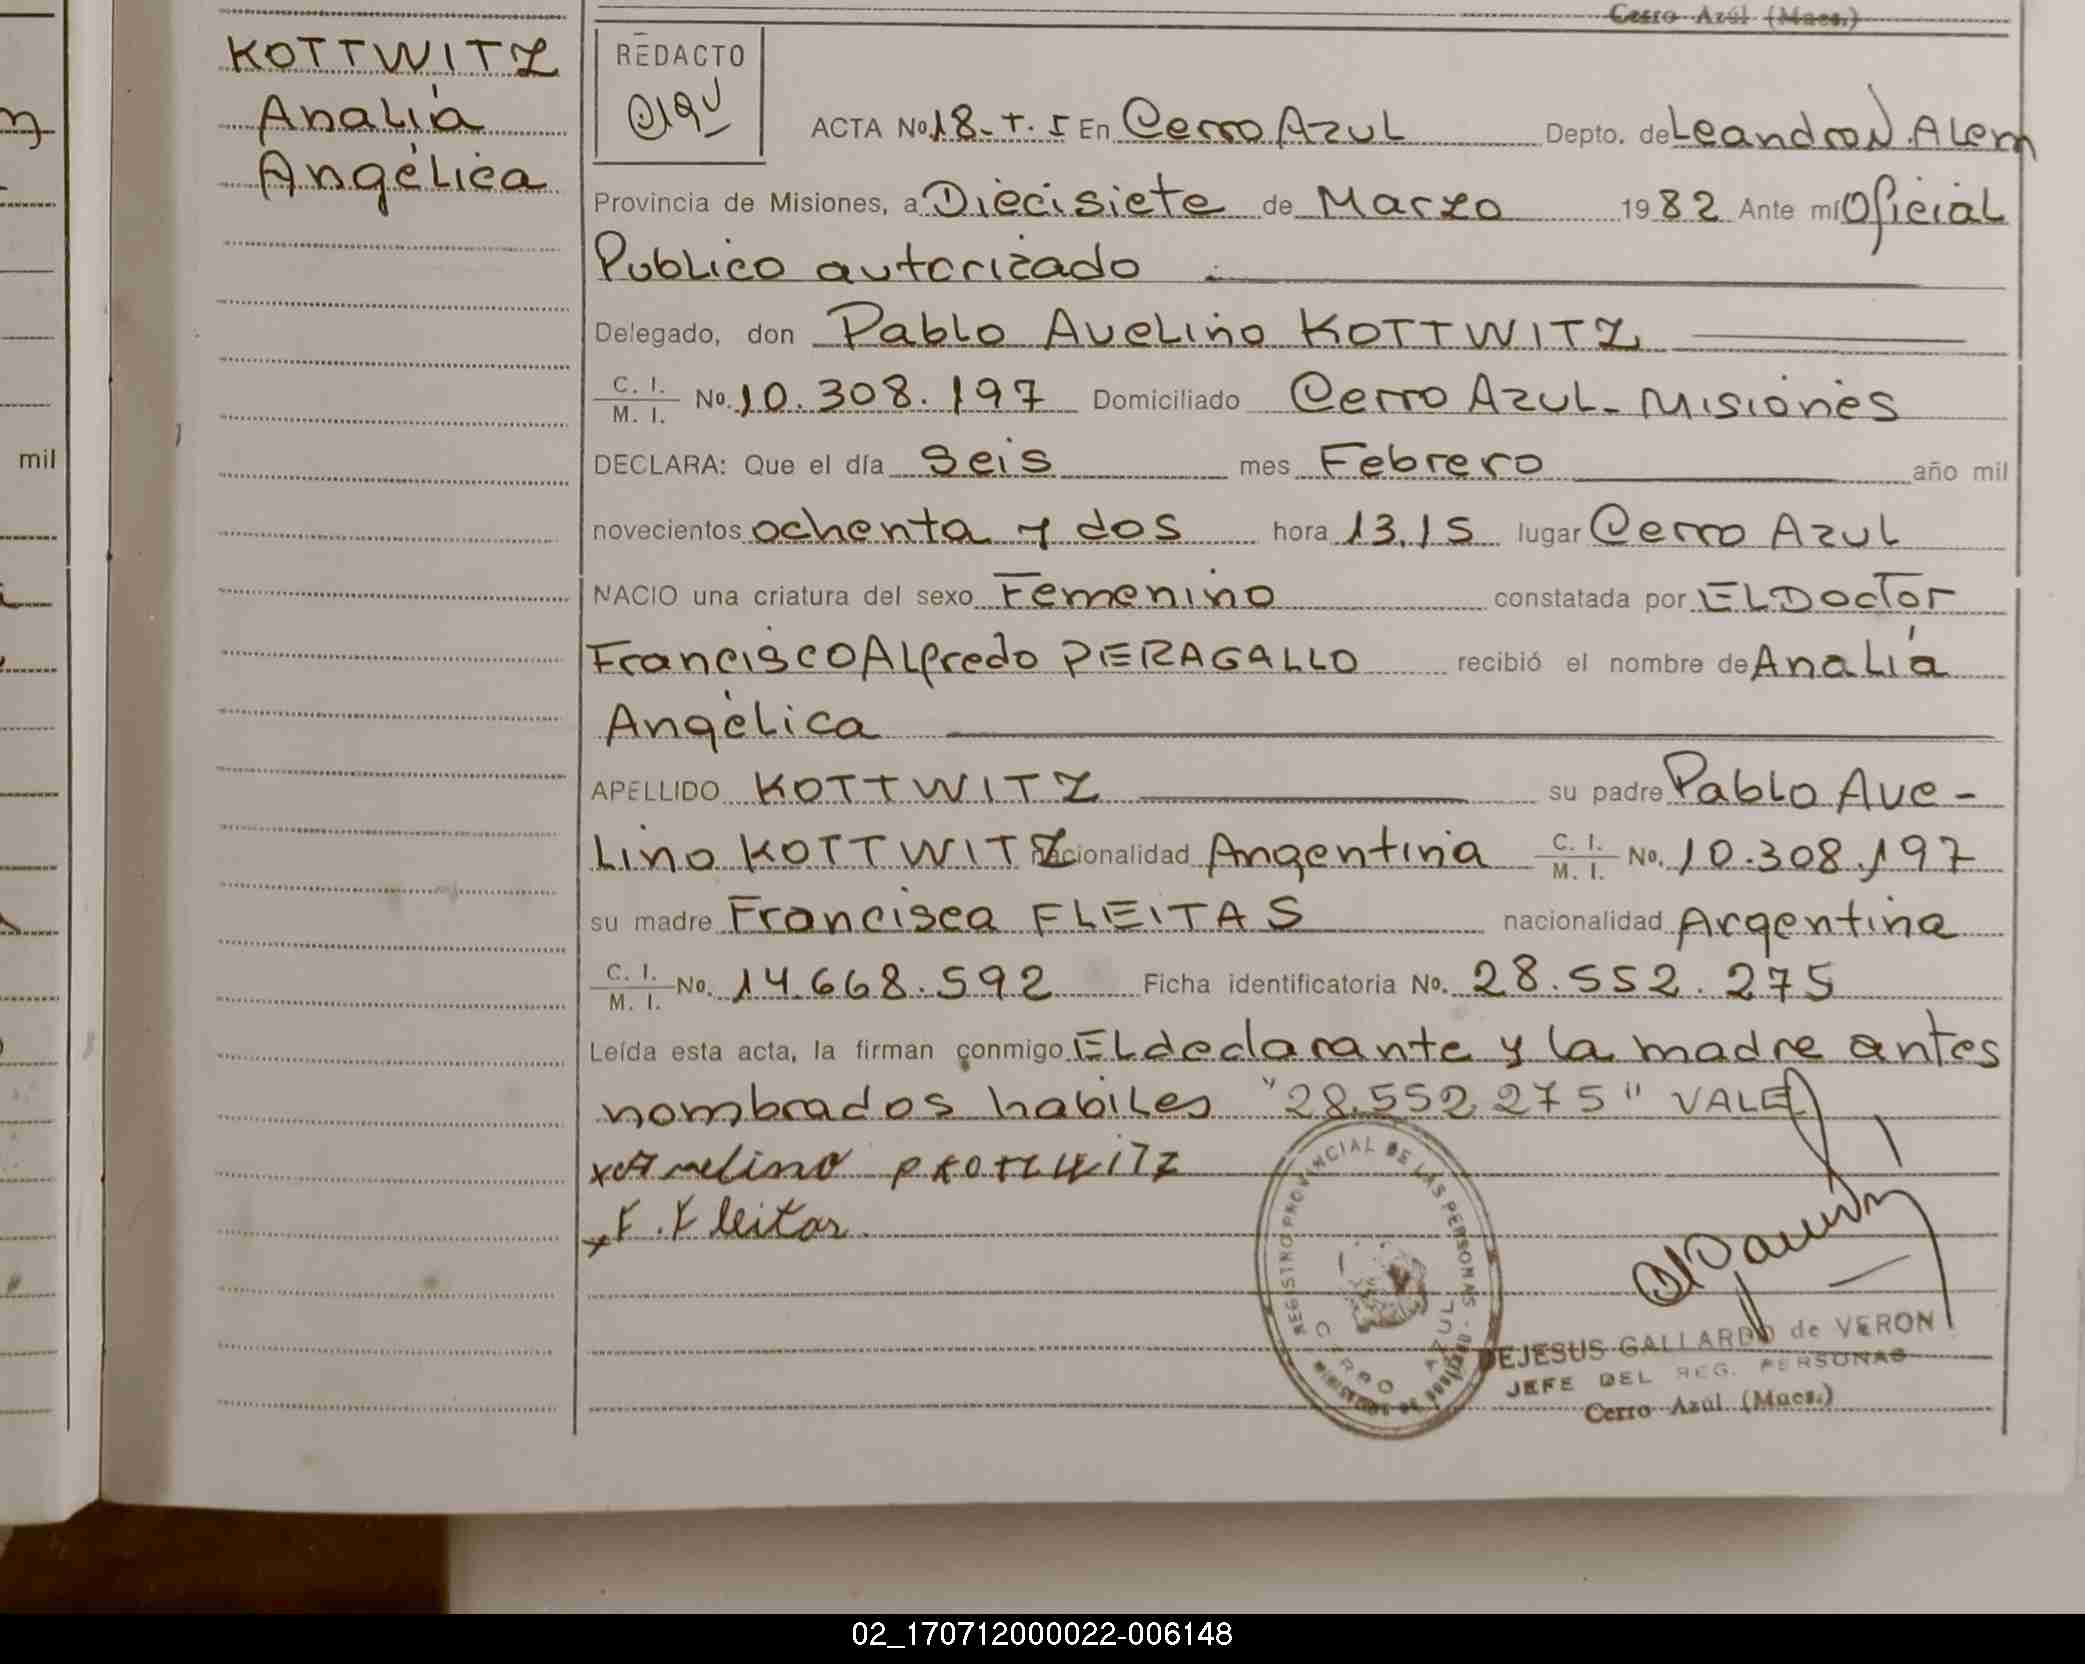 Cerro Azúl (Mnes.)
KOTTWITZ
Analía
Angélica
REDACTO
ACTA No 18-T.I En Cerro Azul Depto. de Leandro N. Alem
Provincia de Misiones, a Diecisiete de Marzo 1982 Ante mí Oficial
Publico autorizado
Delegado, don Pablo Avelino KOTTWITZ
C. I. / M. I. No. 10.308.197 Domiciliado Cerro Azul - Misiones
DECLARA: Que el día Seis mes Febrero año mil
novecientos ochenta y dos hora 13,15 lugar Cerro Azul
NACIO una criatura del sexo Femenino constatada por El Doctor
Francisco Alfredo PERAGALLO recibió el nombre de Analía
Angélica
APELLIDO KOTTWITZ su padre Pablo Ave-
lino KOTTWITZ nacionalidad Argentina C. I. / M. I. No. 10.308.197
su madre Francisca FLEITAS nacionalidad Argentina
C. I. / M. I. No. 14.668.592 Ficha identificatoria No. 28.552.275
Leída esta acta, la firman conmigo El declarante y la madre antes
nombrados habiles "28.552.275" VALE
x Avelino P KOTTWITZ
x F. Fleitas
REGISTRO PROVINCIAL DE LAS PERSONAS
CERRO AZUL
DEJESUS GALLARDO de VERON
JEFE DEL REG. PERSONAS
Cerro Azúl (Mnes.)
mil
02_170712000022-006148